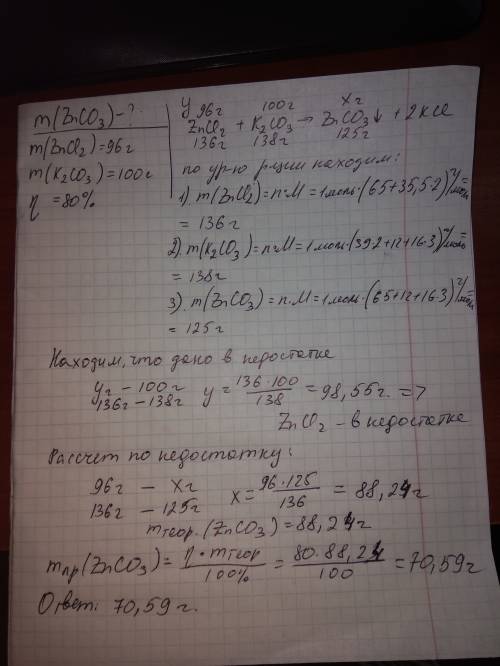 m(ZnCO₃)-?
m(ZnCl₂)=96г
m(K₂CO₃)=100г
η =80%
у 96г 100г Xг
ZnCl₂ + K₂CO₃ → ZnCO₃↓ + 2KCl
136г 138г 125г
по ур-ю р-ции находим:
1). m(ZnCl₂)=n·M=1моль·(65+35,5·2)г/моль=
= 136г
2). m(K₂CO₃)=n·M=1моль·(39·2+12+16·3)г/моль
= 138г
3). m(ZnCO₃)=n·M=1моль·(65+12+16·3)г/моль=
= 125г
Находим, что дано в недостатке
уг – 100г y = 136·100/138 = 98,55г. =>
136г – 138г
ZnCl₂ – в недостатке
Рассчет по недостатку:
96г – Xг X = 96·125/136 = 88,24г
136г – 125г
mтеор.(ZnCO₃)=88,24г
mпр(ZnCO₃)= η·mтеор/100% = 80·88,24/100 =70,59г
Ответ: 70,59г.